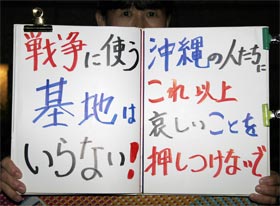 戦争に使う
基地は
いらない!
沖縄の人たちに
これ以上
哀しいことを
押しつけないで